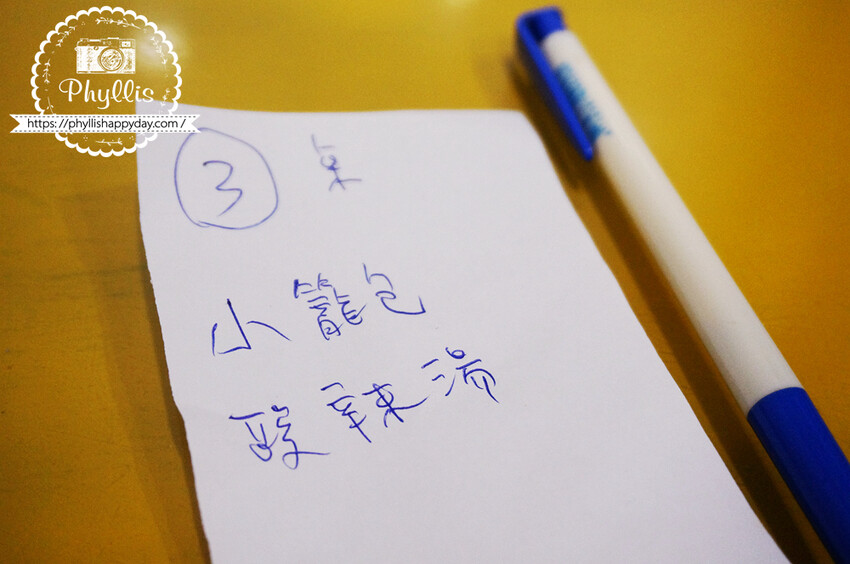 Phyllis
https://phyllishappyday.com /
3 桌
小籠包
酸辣湯